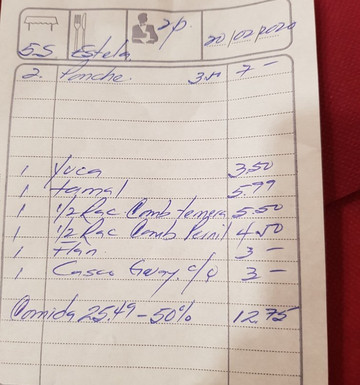 55 Estela 2p. 20/02/2020
2. Ponche. 3.50 7 -
1 Yuca 3.50
1 tamal 5.99
1 1/2 Rac Comb ternera 5.50
1 1/2 Rac Comb Pernil 4.50
1 Flan 3 -
1 Casco Guay. c/q 3 -
Comida 25.49 - 50% 12.75